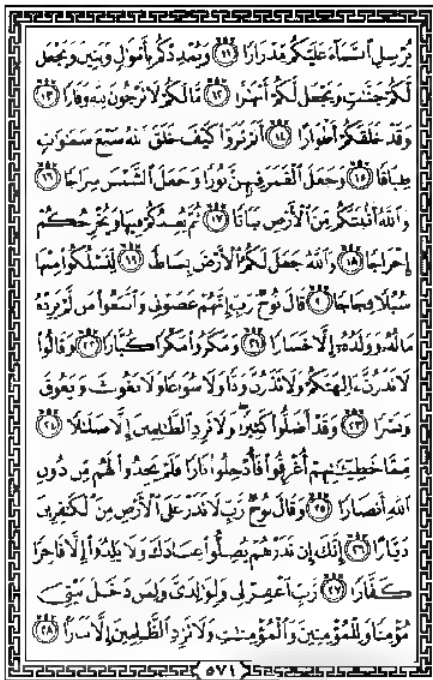 يُرْسِلِ السَّمَاءَ عَلَيْكُمْ مِدْرَارًا ١١ وَيُمْدِدْكُمْ بِأَمْوَالٍ وَبَنِينَ وَيَجْعَلْ
لَكُمْ جَنَّاتٍ وَيَجْعَلْ لَكُمْ أَنْهَارًا ١٢ مَا لَكُمْ لَا تَرْجُونَ لِلَّهِ وَقَارًا ١٣
وَقَدْ خَلَقَكُمْ أَطْوَارًا ١٤ أَلَمْ تَرَوْا كَيْفَ خَلَقَ اللَّهُ سَبْعَ سَمَوَاتٍ
طِبَاقًا ١٥ وَجَعَلَ الْقَمَرَ فِيهِنَّ نُورًا وَجَعَلَ الشَّمْسَ سِرَاجًا ١٦
وَاللَّهُ أَنْبَتَكُمْ مِنَ الْأَرْضِ نَبَاتًا ١٧ ثُمَّ يُعِيدُكُمْ فِيهَا وَيُخْرِجُكُمْ
إِخْرَاجًا ١٨ وَاللَّهُ جَعَلَ لَكُمُ الْأَرْضَ بِسَاطًا ١٩ لِتَسْلُكُوا مِنْهَا
سُبُلًا فِجَاجًا ٢٠ قَالَ نُوحٌ رَبِّ إِنَّهُمْ عَصَوْنِي وَاتَّبَعُوا مَنْ لَمْ يَزِدْهُ
مَالُهُ وَوَلَدُهُ إِلَّا خَسَارًا ٢١ وَمَكَرُوا مَكْرًا كُبَّارًا ٢٢ وَقَالُوا
لَا تَذَرُنَّ آلِهَتَكُمْ وَلَا تَذَرُنَّ وَدًّا وَلَا سُوَاعًا وَلَا يَغُوثَ وَيَعُوقَ
وَنَسْرًا ٢٣ وَقَدْ أَضَلُّوا كَثِيرًا وَلَا تَزِدِ الظَّالِمِينَ إِلَّا ضَلَالًا ٢٤
مِمَّا خَطِيئَاتِهِمْ أُغْرِقُوا فَأُدْخِلُوا نَارًا فَلَمْ يَجِدُوا لَهُمْ مِنْ دُونِ
اللَّهِ أَنْصَارًا ٢٥ وَقَالَ نُوحٌ رَبِّ لَا تَذَرْ عَلَى الْأَرْضِ مِنَ الْكَافِرِينَ
دَيَّارًا ٢٦ إِنَّكَ إِنْ تَذَرْهُمْ يُضِلُّوا عِبَادَكَ وَلَا يَلِدُوا إِلَّا فَاجِرًا
كَفَّارًا ٢٧ رَبِّ اغْفِرْ لِي وَلِوَالِدَيَّ وَلِمَنْ دَخَلَ بَيْتِيَ
مُؤْمِنًا وَلِلْمُؤْمِنِينَ وَالْمُؤْمِنَاتِ وَلَا تَزِدِ الظَّالِمِينَ إِلَّا تَبَارًا ٢٨
٥٧١